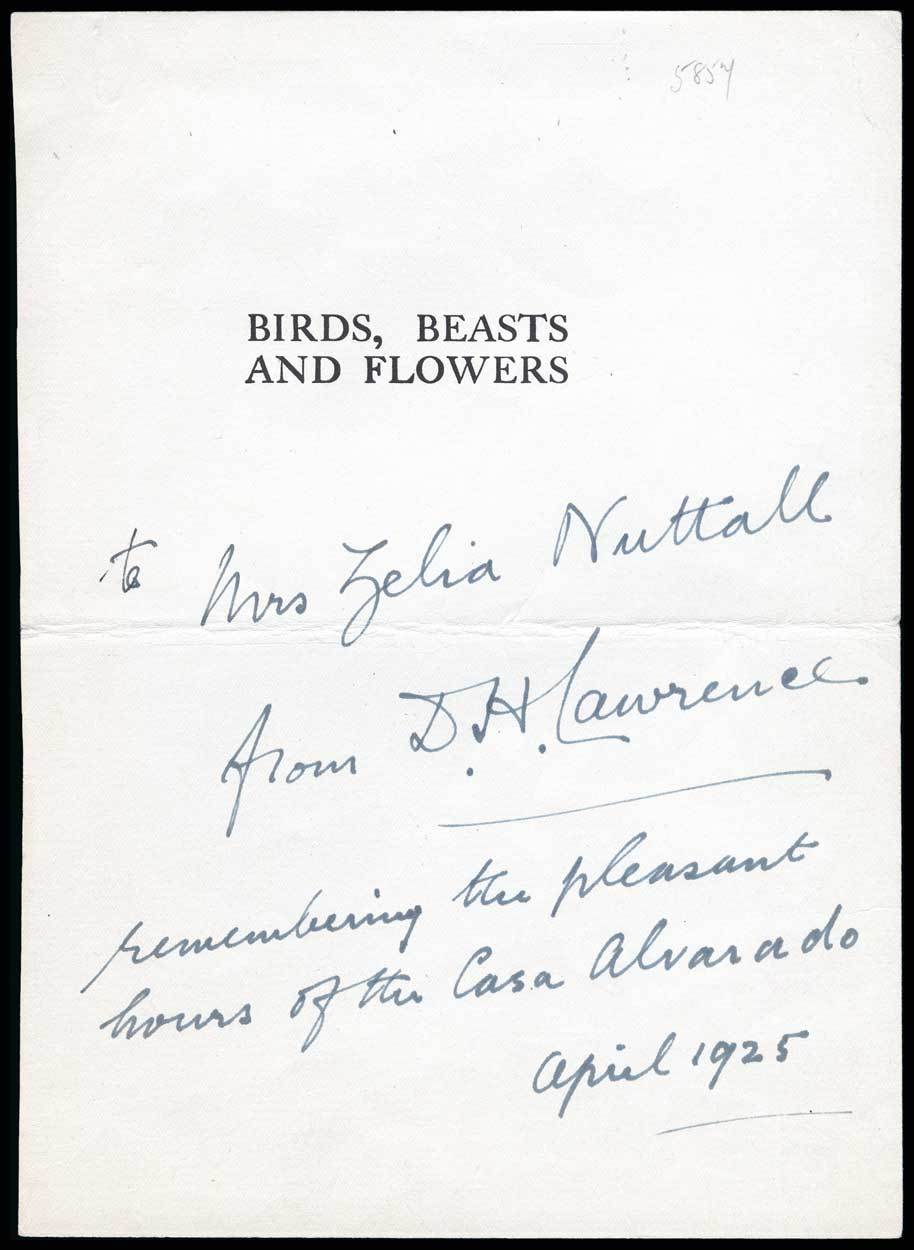 5857
BIRDS, BEASTS
AND FLOWERS
to Mrs Zelia Nuttall
from D. H. Lawrence
remembering the pleasant
hours of the Casa Alvarado
April 1925